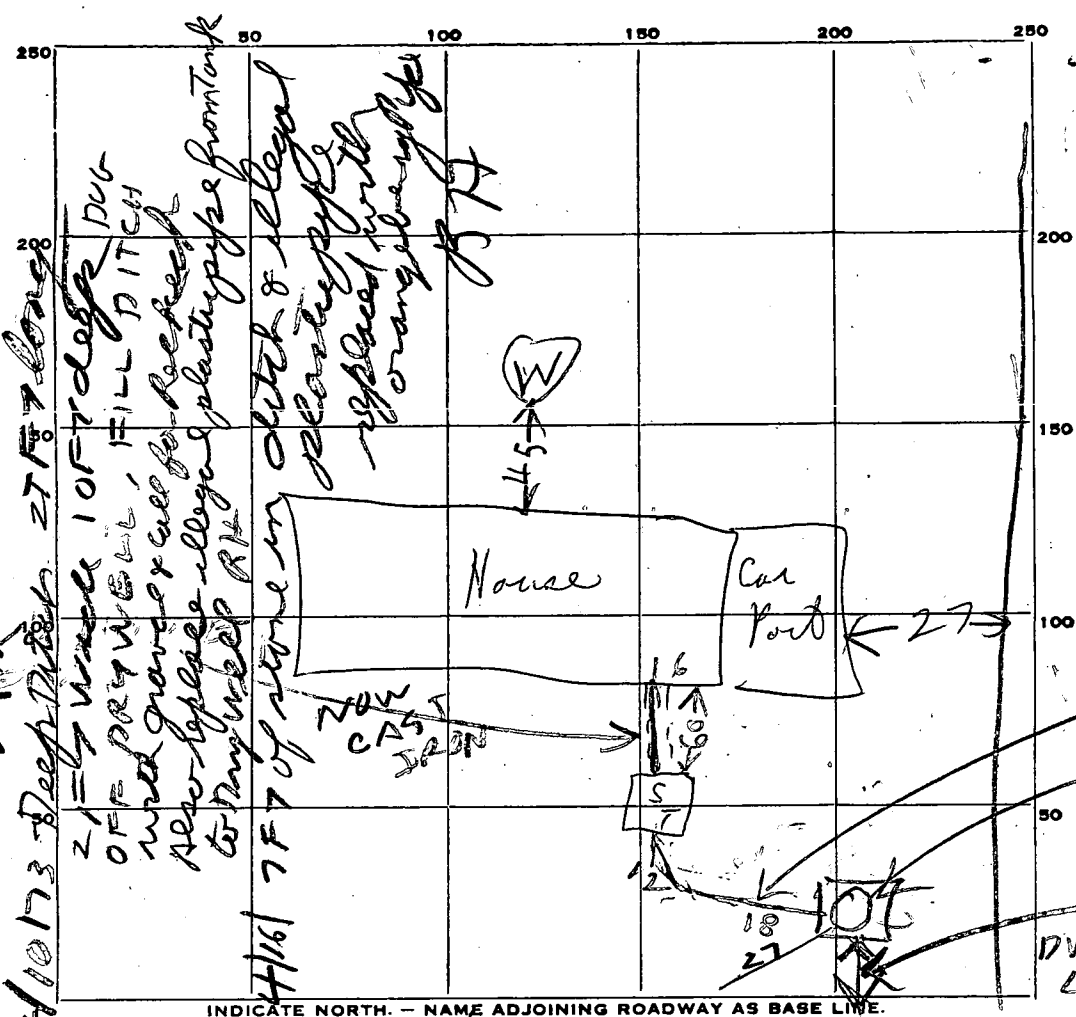 50 100 150 200 250
250
200 200
150
100
50 50
10 173 - Deep Ditch 27 FT long
2 FT wide 10 FT deep DUG
OFF DRYWELL, FILL DITCH
with gravel & call for Recheck
Also replace illegal plastic pipe from Tank
to Drywell RH
4/16/ 7 FT of stone in ditch & illegal
plastic pipe
replaced with
orangeburg Pipe
W
45
House
Car
Port
27
16
NOW
CAST
IRON
ST
12
18
27
INDICATE NORTH. — NAME ADJOINING ROADWAY AS BASE LINE.